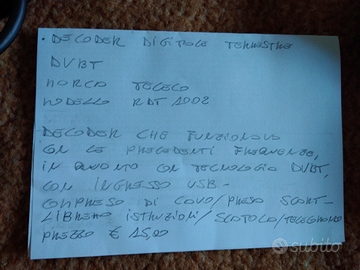 • DECODER DIGITALE TERRESTRE
DVBT
MARCA TELECO
MODELLO RDT 1002
DECODER CHE FUNZIONAVA
CON LE PRECEDENTI FREQUENZE,
IN QUANTO CON TECNOLOGIA DVBT,
CON INGRESSO USB -
COMPRESO DI CAVO/PRESA SCART -
LIBRETTO ISTRUZIONI/SCATOLA/TELECOMANDO
PREZZO € 15,00
subito